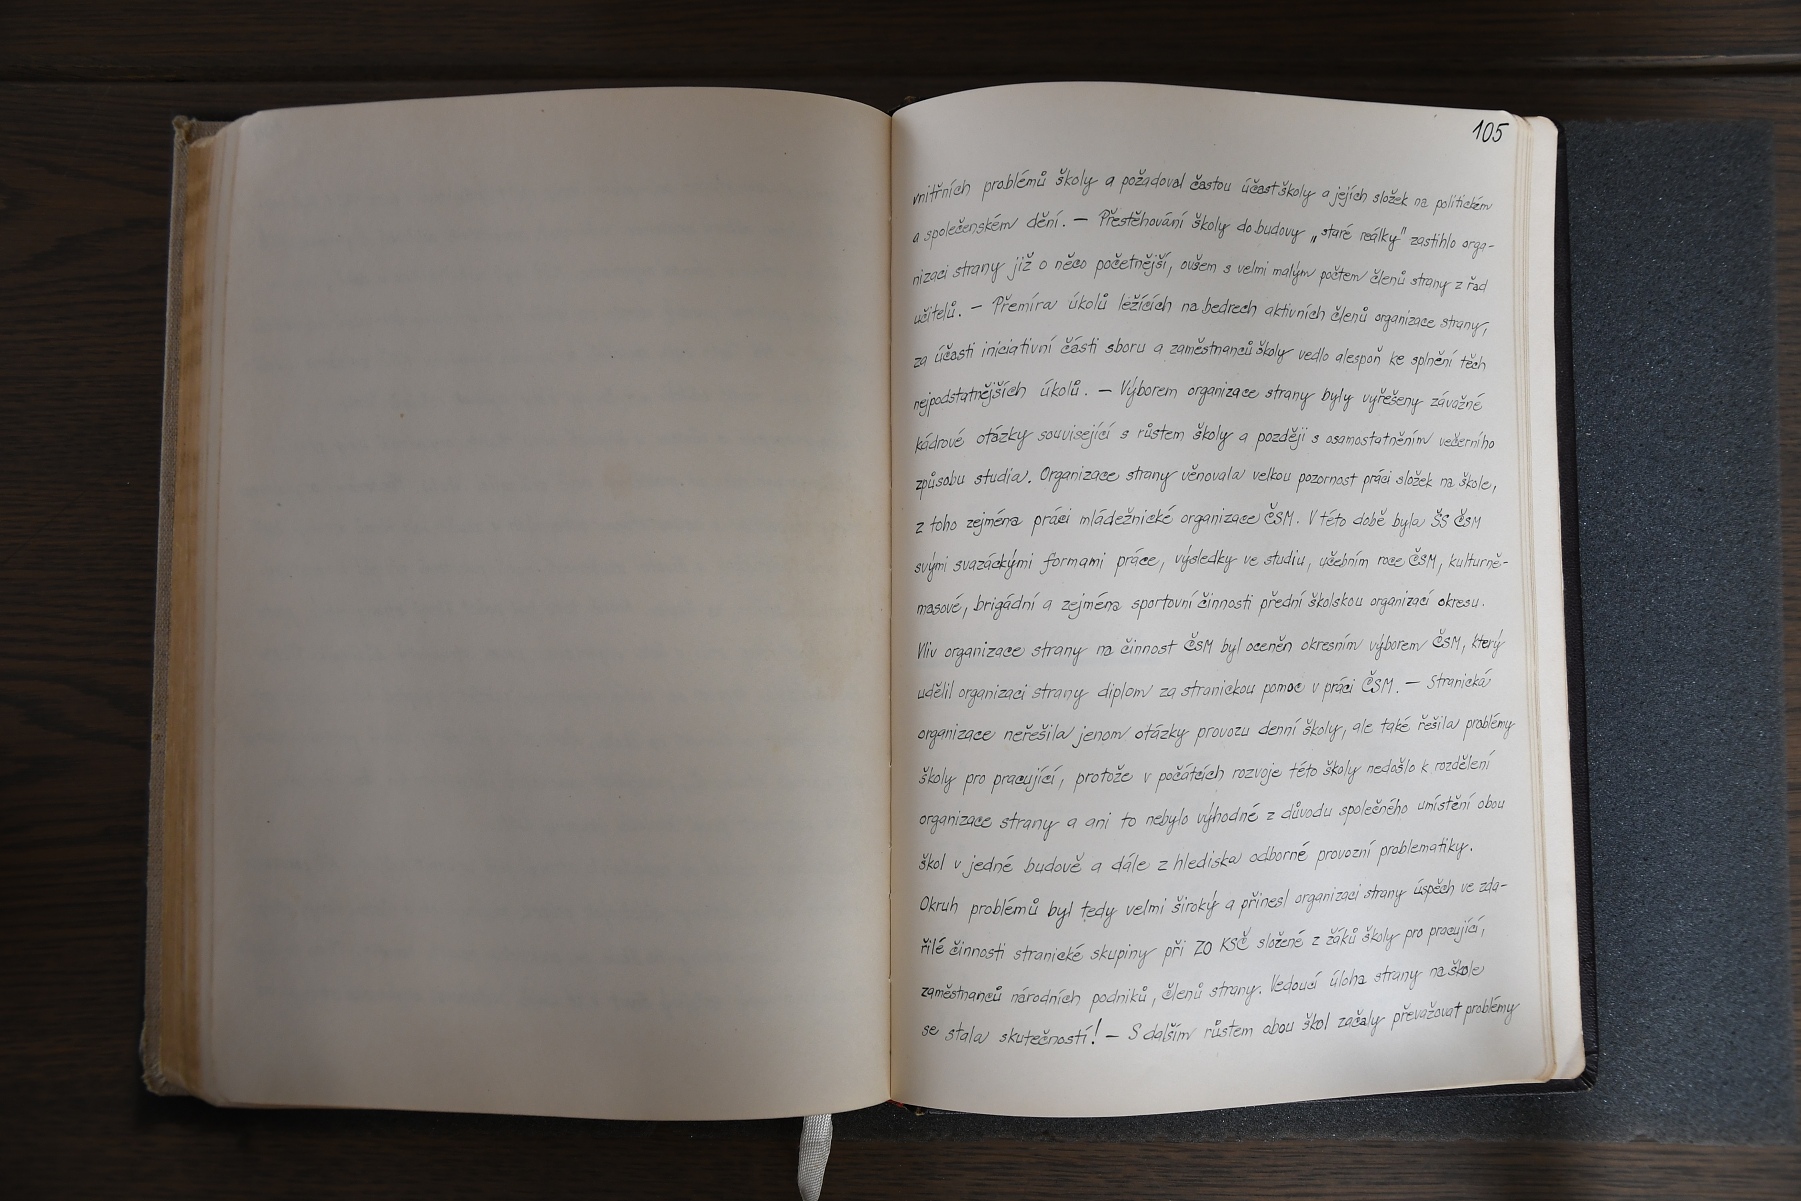 105
vnitřních problémů školy a požadoval častou účast školy a jejích složek na politickém
a společenském dění. — Přestěhování školy do budovy „staré reálky" zastihlo orga-
nizaci strany již o něco početnější, ovšem s velmi malým počtem členů strany z řad
učitelů. — Přemíra úkolů ležících na bedrech aktivních členů organizace strany,
za účasti iniciativní části sboru a zaměstnanců školy vedlo alespoň ke splnění těch
nejpodstatnějších úkolů. — Výborem organizace strany byly vyřešeny závažné
kádrové otázky související s růstem školy a později s osamostatněním večerního
způsobu studia. Organizace strany věnovala velkou pozornost práci složek na škole,
z toho zejména práci mládežnické organizace ČSM. V této době byla ŠS ČSM
svými svazáckými formami práce, výsledky ve studiu, učebním roce ČSM, kulturně-
masové, brigádní a zejména sportovní činnosti přední školskou organizací okresu.
Vliv organizace strany na činnost ČSM byl oceněn okresním výborem ČSM, který
udělil organizaci strany diplom za stranickou pomoc v práci ČSM. — Stranická
organizace neřešila jenom otázky provozu denní školy, ale také řešila problémy
školy pro pracující, protože v počátcích rozvoje této školy nedošlo k rozdělení
organizace strany a ani to nebylo výhodné z důvodu společného umístění obou
škol v jedné budově a dále z hlediska odborné provozní problematiky.
Okruh problémů byl tedy velmi široký a přinesl organizaci strany úspěch ve zda-
řilé činnosti stranické skupiny při ZO KSČ složené z žáků školy pro pracující,
zaměstnanců národních podniků, členů strany. Vedoucí úloha strany na škole
se stala skutečností! — S dalším růstem obou škol začaly převažovat problémy